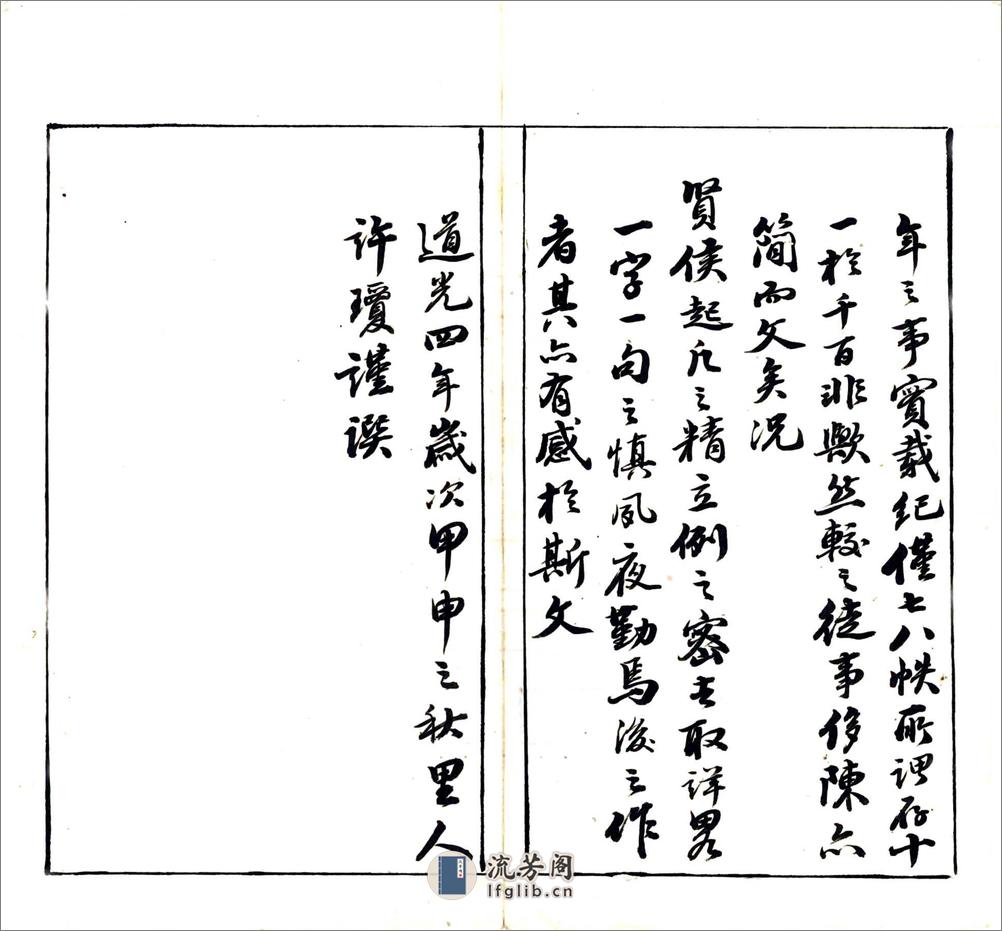 年之事實載紀僅七八帙所謂存十
一於千百非歟然較之徒事侈陳亦
簡而文矣況
賢侯起凡之精立例之密去取詳畧
一字一句之慎夙夜勤焉後之作
者其亦有感於斯文
道光四年歲次甲申之秋里人
許瓊謹譔
流芳阁
lfglib.cn